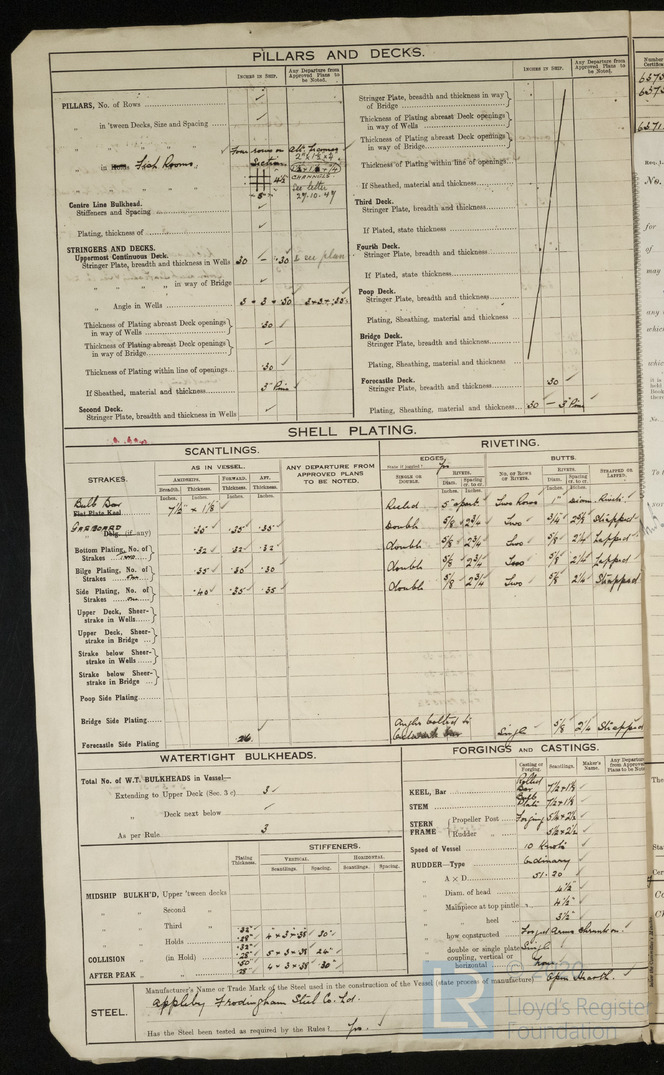 PILLARS AND DECKS.
INCHES IN SHIP.
Any Departure from Approved Plans to be Noted.
PILLARS, No. of Rows
„ in 'tween Decks, Size and Spacing
„ „ „ „
„ in Holds Fish Rooms „
Four rows on
section
4½
Alt. frames
CHANNELS
See letter
27.10.47
Centre Line Bulkhead.
Stiffeners and Spacing
Plating, thickness of
STRINGERS AND DECKS.
Uppermost Continuous Deck.
Stringer Plate, breadth and thickness in Wells 30 — .30 & see plan
„ „ „ „ in way of Bridge
„ Angle in Wells 3 × 3 × .30 3×3×.35
Thickness of Plating abreast Deck openings in way of Wells .30
Thickness of Plating abreast Deck openings in way of Bridge
Thickness of Plating within line of openings .30
If Sheathed, material and thickness 3" Pine
Second Deck.
Stringer Plate, breadth and thickness in Wells
INCHES IN SHIP.
Any Departure from Approved Plans to be Noted.
Stringer Plate, breadth and thickness in way of Bridge
Thickness of Plating abreast Deck openings in way of Wells
Thickness of Plating abreast Deck openings in way of Bridge
Thickness of Plating within line of openings
If Sheathed, material and thickness
Third Deck.
Stringer Plate, breadth and thickness
If Plated, state thickness
Fourth Deck.
Stringer Plate, breadth and thickness
If Plated, state thickness
Poop Deck.
Stringer Plate, breadth and thickness
Plating, Sheathing, material and thickness
Bridge Deck.
Stringer Plate, breadth and thickness
Plating, Sheathing, material and thickness
Forecastle Deck.
Stringer Plate, breadth and thickness .30
Plating, Sheathing, material and thickness .30 — 3" Pine
SHELL PLATING.
SCANTLINGS.
RIVETING.
STRAKES.
AS IN VESSEL.
AMIDSHIPS. FORWARD. AFT.
Breadth. Thickness. Thickness. Thickness.
Inches. Inches. Inches. Inches.
ANY DEPARTURE FROM APPROVED PLANS TO BE NOTED.
EDGES.
State if joggled?
SINGLE OR DOUBLE.
RIVETS.
Diam. Spacing cr. to cr.
Inches. Inches.
BUTTS.
NO. OF ROWS OF RIVETS.
RIVETS.
Diam. Spacing cr. to cr.
Inches. Inches.
STRAPPED OR LAPPED.
Bulb Bar
Flat Plate Keel 7½" × 1⅛" 5" apart Two Rows 1"
GARBOARD
Dblg. (if any) .35 .35 .35 Double 5/8 2¾ Two 3/4 2⅝ Strapped
Bottom Plating, No. of Strakes two .32 .32 .32 double 5/8 2¾ Two 5/8 2¼ Lapped
Bilge Plating, No. of Strakes one .35 .30 .30 double 5/8 2¾ Two 5/8 2¼ Lapped
Side Plating, No. of Strakes one .40 .35 .35 double 5/8 2¾ Two 5/8 2¼ Strapped
Upper Deck, Sheer-strake in Wells
Upper Deck, Sheer-strake in Bridge
Strake below Sheer-strake in Wells
Strake below Sheer-strake in Bridge
Poop Side Plating
Bridge Side Plating
Forecastle Side Plating .26 Angle bolted to Single 5/8 2¼ Strapped
WATERTIGHT BULKHEADS.
Total No. of W.T. BULKHEADS in Vessel—
Extending to Upper Deck (Sec. 3 c) 3
„ Deck next below
As per Rule 3
Plating Thickness.
STIFFENERS.
VERTICAL. HORIZONTAL.
Scantlings. Spacing. Scantlings. Spacing.
MIDSHIP BULKH'D, Upper 'tween decks
„ Second „
„ Third „
„ Holds 4 × 3 × .38 30"
COLLISION „ (in Hold) 5 × 3 × .38 24"
AFTER PEAK „ „ 4 × 3 × .38 30"
FORGINGS AND CASTINGS.
Casting or Forging.
Scantlings.
Maker's Name.
Any Departure from Approved Plans to be Noted
KEEL, Bar Rolled Bar 7½×1⅛
STEM Bulb Plate 7½×1⅛
STERN FRAME { Propeller Post Forging 5½×2½
Rudder „ 5½×2½
Speed of Vessel 10 Knots
RUDDER—Type Ordinary
„ A × D 51.20
„ Diam. of head 4½"
„ Mainpiece at top pintle 4½"
„ „ heel 3½"
„ how constructed Forged Arms shrunk on
„ double or single plate Single
„ coupling, vertical or horizontal
STEEL.
Manufacturer's Name or Trade Mark of the Steel used in the construction of the Vessel (state process of manufacture) Open Hearth.
Appleby Frodingham Steel Co. Ltd.
Has the Steel been tested as required by the Rules? Yes.
© 2020
Lloyd's Register
Foundation
LR